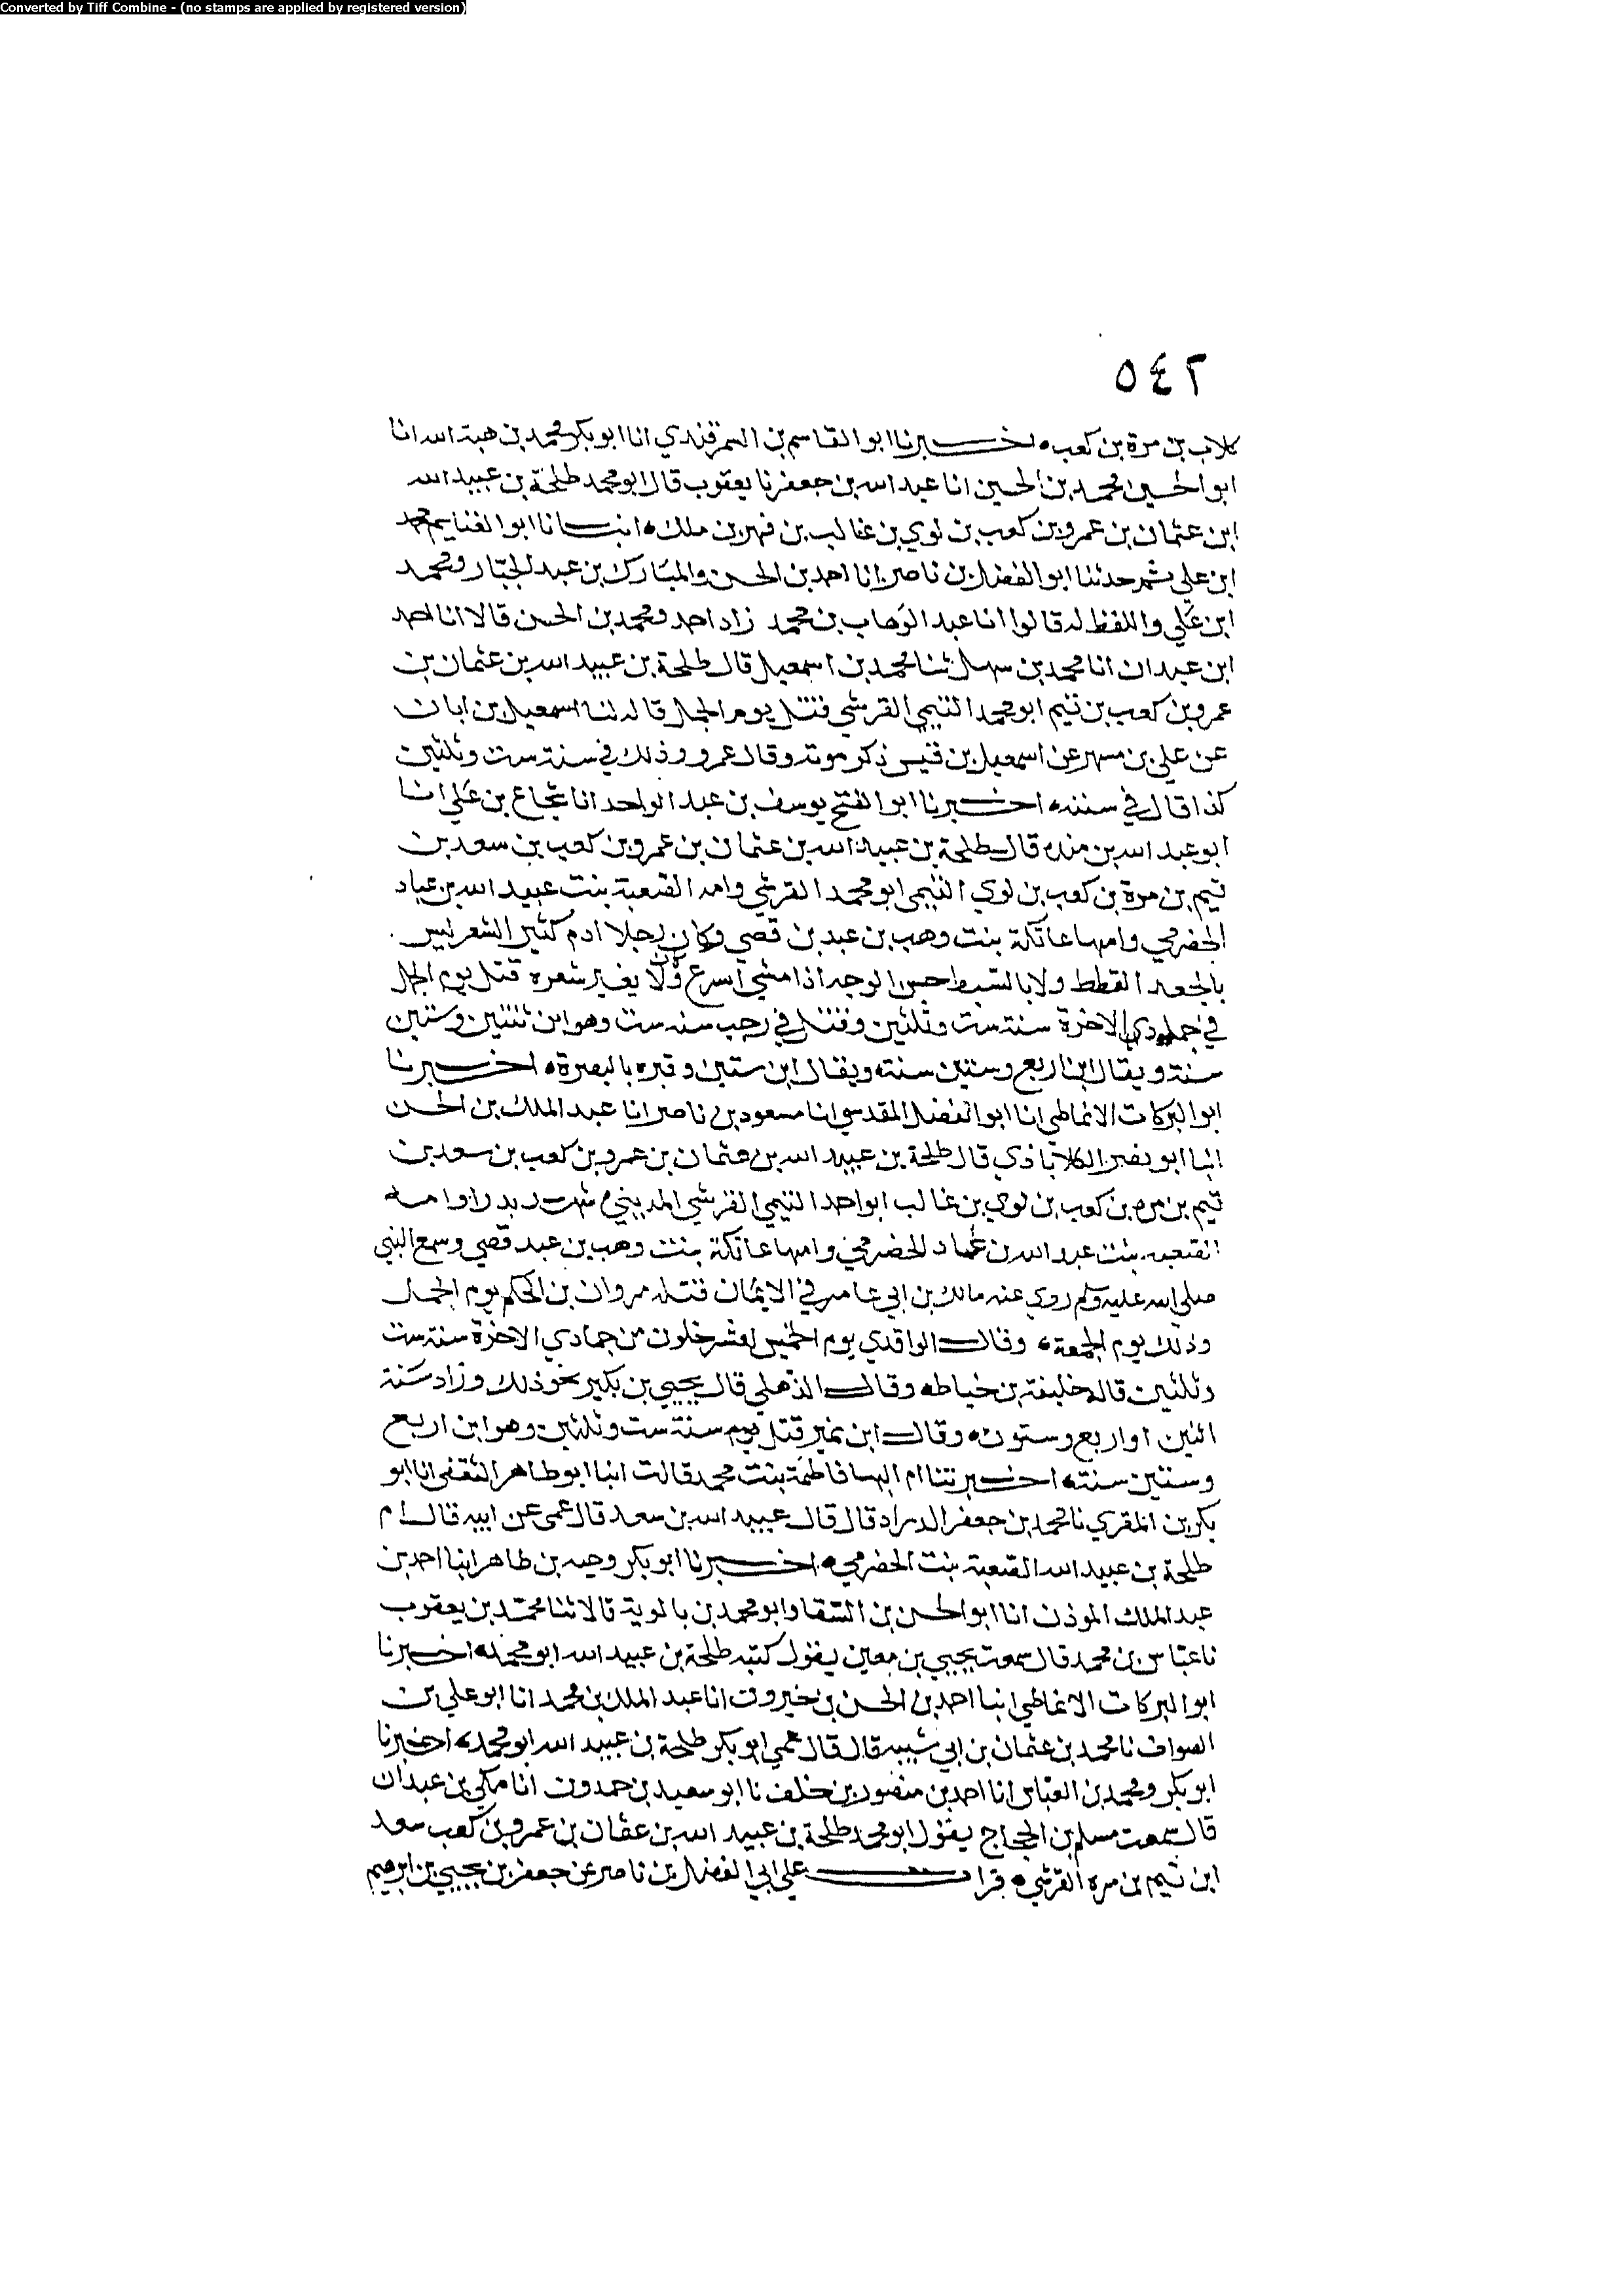 Converted by Tiff Combine - (no stamps are applied by registered version)
٥٤٢
كلاب بن مرة بن كعب اخبرنا ابو القاسم بن السمرقندي انا ابو بكر محمد بن هبة الله انا
ابو الحسين محمد بن الحسين انا عبد الله بن جعفر نا يعقوب قال ابو محمد طلحة بن عبيد الله
ابن عثمان بن عمرو بن كعب بن لوي بن غالب بن فهر بن ملك انبانا ابو الغنايم محمد
ابن علي ثم حدثنا ابو الفضل بن ناصر انا احمد بن الحسن والمبارك بن عبد الجبار ومحمد
ابن علي واللفظ له قالوا انا عبد الوهاب بن محمد زاد احمد ومحمد بن الحسن قالا انا احمد
ابن عبدان انا محمد بن سهل ثنا محمد بن اسمعيل قال طلحة بن عبيد الله بن عثمان بن
عمرو بن كعب بن تيم ابو محمد التيمي القرشي قتل يوم الجمل قاله لنا اسمعيل بن ابان
عن علي بن مسهر عن اسمعيل بن قيس ذكر موته وقال عمرو وذلك في سنة ست وثلثين
كذا قال في سننه اخبرنا ابو الفتح يوسف بن عبد الواحد انا شجاع بن علي انا
ابو عبد الله بن منده قال طلحة بن عبيد الله بن عثمان بن عمرو بن كعب بن سعد بن
تيم بن مرة بن كعب بن لوي التيمي ابو محمد القرشي وامه الصعبة بنت عبيد الله بن عباد
الحضرمي وامها عاتكة بنت وهب بن عبد بن قصي وكان رجلا ادم كثير الشعر ليس
بالجعد القطط ولا بالسبط احسن الوجه اذا مشي اسرع وكان لا يغير شعره قتل يوم الجمل
في جمادي الاخرة سنة ست وثلثين وقتل في رجب سنة ست وهو ابن ثنتين وستين
سنة ويقال ابن اربع وستين سنة ويقال ابن ستين وقبره بالبصرة اخبرنا
ابو البركات الانماطي انا ابو الفضل المقدسي انا مسعود بن ناصر انا عبد الملك بن الحسن
انبا ابو نصر الكلاباذي قال طلحة بن عبيد الله بن عثمان بن عمرو بن كعب بن سعد بن
تيم بن مره بن كعب بن لوي بن غالب ابو احمد التيمي القرشي المديني شهد بدرا وامه
الصعبه بنت عبد الله بن عماد الحضرمي وامها عاتكة بنت وهب بن عبد قصي وسمع النبي
صلى الله عليه وسلم روي عنه مالك بن ابي عامر في الايمان قتله مروان بن الحكم يوم الجمل
وذلك يوم الجمعة وقال الواقدي يوم الخميس لعشر خلون من جمادي الاخرة سنة ست
وثلثين قاله خليفة بن خياط وقال الذهلي قال يحيي بن بكير نحو ذلك وزاد سنة
اثنين او اربع وستون وقال ابن نمير قتل يوم سنة ست وثلثين وهو ابن اربع
وستين سنة اخبرتنا ام البها فاطمة بنت محمد قالت انبا ابو طاهر الثقفي انا ابو
بكر بن المقري نا محمد بن جعفر الزراد قال قال عبيد الله بن سعد قال عمي عن ابيه قال ام
طلحة بن عبيد الله الصعبة بنت الحضرمي اخبرنا ابو بكر وجيه بن طاهر انبا احمد بن
عبد الملك الموذن انا ابو الحسن بن السقا وابو محمد بن بالوية قالا ثنا محمد بن يعقوب
نا عباس بن محمد قال سمعت يحيي بن معين يقول كنيه طلحة بن عبيد الله ابو محمد اخبرنا
ابو البركات الانماطي انبا احمد بن الحسن بن خيرون انا عبد الملك بن محمد انا ابو علي بن
الصواف نا محمد بن عثمان بن ابي شيبه قال قال عمي ابو بكر طلحة بن عبيد الله ابو محمد اخبرنا
ابو بكر ومحمد بن العباس انا احمد بن منصور بن خلف نا ابو سعيد بن حمدون انا مكي بن عبدان
قال سمعت مسلم بن الحجاج يقول ابو محمد طلحة بن عبيد الله بن عثمان بن عمرو بن كعب سعد
ابن تيم بن مره القرشي قرات علي ابي الفضل بن ناصر عن جعفر بن يحيي بن ابرهيم